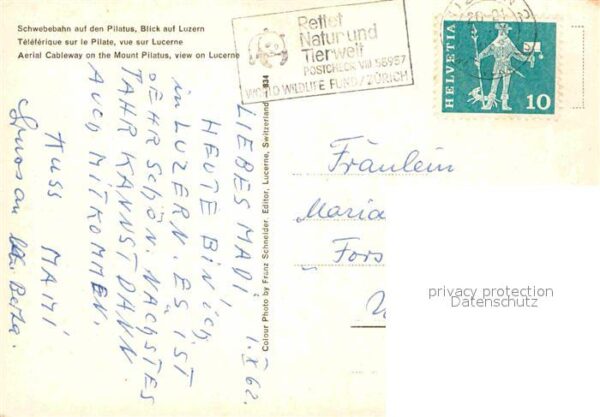 Schwebebahn auf den Pilatus, Blick auf Luzern
Téléférique sur le Pilate, vue sur Lucerne
Aerial Cableway on the Mount Pilatus, view on Lucerne
Rettet
Natur und
Tierwelt
POSTCHECK VIII 58957
WORLD WILDLIFE FUND / ZÜRICH
HELVETIA
10
1.X.62.
LIEBES MADI!
HEUTE BIN ICH
in LUZERN. ES IST
SEHR SCHÖN. NÄCHSTES
JAHR KANNST DANN
AUCH MITKOMMEN.
KUSS MAMI
Gruss an
Colour Photo by Franz Schneider, Editor, Lucerne, Switzerland 934
Fräulein
Maria
Fors
privacy protection
Datenschutz